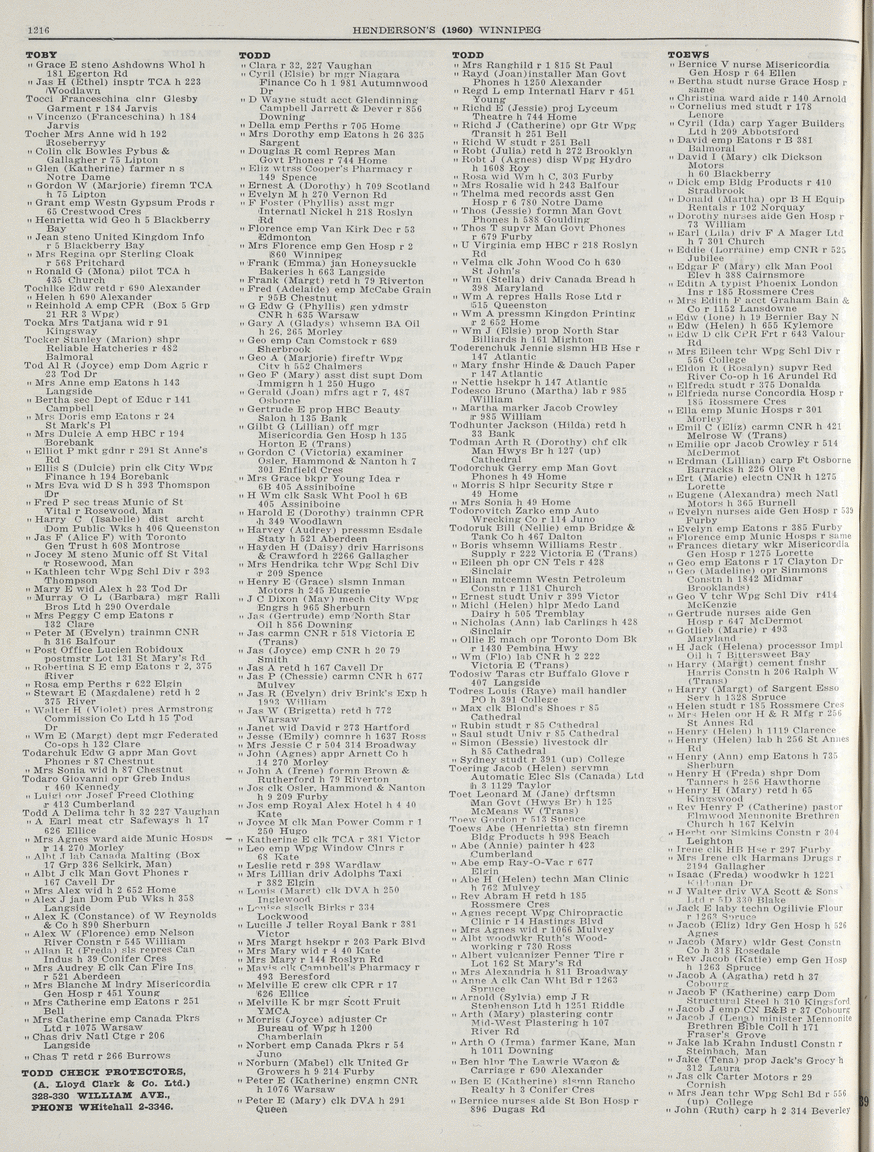 1216
HENDERSON'S (1960) WINNIPEG
TOBY
" Grace E steno Ashdowns Whol h
181 Egerton Rd
" Jas H (Ethel) insptr TCA h 223
Woodlawn
Tocci Franceschina clnr Glesby
Garment r 184 Jarvis
" Vincenzo (Franceschina) h 184
Jarvis
Tocher Mrs Anne wid h 192
Roseberry
" Colin clk Bowles Pybus &
Gallagher r 75 Lipton
" Glen (Katherine) farmer n s
Notre Dame
" Gordon W (Marjorie) firemn TCA
h 75 Lipton
" Grant emp Westn Gypsum Prods r
65 Crestwood Cres
" Henrietta wid Geo h 5 Blackberry
Bay
" Jean steno United Kingdom Info
r 5 Blackberry Bay
" Mrs Regina opr Sterling Cloak
r 568 Pritchard
" Ronald G (Mona) pilot TCA h
435 Church
Tochlke Edw retd r 690 Alexander
" Helen h 690 Alexander
" Reinhold A emp CPR (Box 5 Grp
21 RR 3 Wpg)
Tocka Mrs Tatjana wid r 91
Kingsway
Tocker Stanley (Marion) shpr
Reliable Hatcheries r 482
Balmoral
Tod Al R (Joyce) emp Dom Agric r
23 Tod Dr
" Mrs Anne emp Eatons h 143
Langside
" Bertha sec Dept of Educ r 141
Campbell
" Mrs Doris emp Eatons r 24
St Mark's Pl
" Mrs Dulcie A emp HBC r 194
Borebank
" Elliot P mkt gdnr r 291 St Anne's
Rd
" Ellis S (Dulcie) prin clk City Wpg
Finance h 194 Borebank
" Mrs Eva wid D S h 393 Thomspon
Dr
" Fred P sec treas Munic of St
Vital r Rosewood, Man
" Harry C (Isabelle) dist archt
Dom Public Wks h 406 Queenston
" Jas F (Alice F) with Toronto
Gen Trust h 608 Montrose
" Jocey M steno Munic off St Vital
r Rosewood, Man
" Kathleen tchr Wpg Schl Div r 393
Thompson
" Mary E wid Alex h 23 Tod Dr
" Murray O L (Barbara) mgr Ralli
Bros Ltd h 290 Overdale
" Mrs Peggy C emp Eatons r
132 Clare
" Peter M (Evelyn) trainmn CNR
h 316 Balfour
" Post Office Lucien Robidoux
postmstr Lot 131 St Mary's Rd
" Robertina S E emp Eatons r 2, 375
River
" Rosa emp Perths r 622 Elgin
" Stewart E (Magdalene) retd h 2
375 River
" Walter H (Violet) pres Armstrong
Commission Co Ltd h 15 Tod
Dr
" Wm E (Margt) dept mgr Federated
Co-ops h 132 Clare
Todarchuk Edw G appr Man Govt
Phones r 87 Chestnut
" Mrs Sonia wid h 87 Chestnut
Todaro Giovanni opr Greb Indus
r 460 Kennedy
" Luigi opr Josef Freed Clothing
r 413 Cumberland
Todd A Delima tchr h 32 227 Vaughan
" A Earl meat ctr Safeways h 17
626 Ellice
" Mrs Agnes ward aide Munic Hosps
r 14 270 Morley
" Albt J lab Canada Malting (Box
17 Grp 336 Selkirk, Man)
" Albt J clk Man Govt Phones r
167 Cavell Dr
" Mrs Alex wid h 2 652 Home
" Alex J jan Dom Pub Wks h 358
Langside
" Alex K (Constance) of W Reynolds
& Co h 890 Sherburn
" Alex W (Florence) emp Nelson
River Constn r 545 William
" Allan R (Freda) sls repres Can
Indus h 39 Conifer Cres
" Mrs Audrey E clk Can Fire Ins
r 521 Aberdeen
" Mrs Blanche M lndry Misericordia
Gen Hosp r 451 Young
" Mrs Catherine emp Eatons r 251
Bell
" Mrs Catherine emp Canada Pkrs
Ltd r 1075 Warsaw
" Chas driv Natl Ctge r 206
Langside
" Chas T retd r 266 Burrows
TODD CHECK PROTECTORS,
(A. Lloyd Clark & Co. Ltd.)
328-330 WILLIAM AVE.,
PHONE WHitehall 2-3346.
TODD
" Clara r 32, 227 Vaughan
" Cyril (Elsie) br mgr Niagara
Finance Co h 1 981 Autumnwood
Dr
" D Wayne studt acct Glendinning
Campbell Jarrett & Dever r 856
Downing
" Della emp Perths r 705 Home
" Mrs Dorothy emp Eatons h 26 335
Sargent
" Douglas R coml Repres Man
Govt Phones r 744 Home
" Eliz wtrss Cooper's Pharmacy r
149 Spence
" Ernest A (Dorothy) h 709 Scotland
" Evelyn M h 270 Vernon Rd
" F Foster (Phyllis) asst mgr
Internatl Nickel h 218 Roslyn
Rd
" Florence emp Van Kirk Dec r 53
Edmonton
" Mrs Florence emp Gen Hosp r 2
860 Winnipeg
" Frank (Emma) jan Honeysuckle
Bakeries h 663 Langside
" Frank (Margt) retd h 79 Riverton
" Fred (Adelaide) emp McCabe Grain
r 95B Chestnut
" G Edw G (Phyllis) gen ydmstr
CNR h 635 Warsaw
" Gary A (Gladys) whsemn BA Oil
h 26, 265 Morley
" Geo emp Can Comstock r 689
Sherbrook
" Geo A (Marjorie) fireftr Wpg
City h 552 Chalmers
" Geo F (Mary) asst dist supt Dom
Immigrn h 1 250 Hugo
" Gerald (Joan) mfrs agt r 7, 487
Osborne
" Gertrude E prop HBC Beauty
Salon h 135 Bank
" Gilbt G (Lillian) off mgr
Misericordia Gen Hosp h 135
Horton E (Trans)
" Gordon C (Victoria) examiner
Osler, Hammond & Nanton h 7
301 Enfield Cres
" Mrs Grace bkpr Young Idea r
6B 405 Assiniboine
" H Wm clk Sask Wht Pool h 6B
405 Assiniboine
" Harold E (Dorothy) trainmn CPR
h 349 Woodlawn
" Harvey (Audrey) pressmn Esdale
Staty h 521 Aberdeen
" Hayden H (Daisy) driv Harrisons
& Crawford h 2266 Gallagher
" Mrs Hendrika tchr Wpg Schl Div
r 209 Spence
" Henry E (Grace) slsmn Inman
Motors h 245 Eugenie
" J C Dixon (May) mech City Wpg
Engrs h 965 Sherburn
" Jas (Gertrude) emp North Star
Oil h 856 Downing
" Jas carmn CNR r 518 Victoria E
(Trans)
" Jas (Joyce) emp CNR h 20 79
Smith
" Jas A retd h 167 Cavell Dr
" Jas P (Chessie) carmn CNR h 677
Mulvey
" Jas R (Evelyn) driv Brink's Exp h
1993 William
" Jas W (Brigetta) retd h 772
Warsaw
" Janet wid David r 273 Hartford
" Jesse (Emily) comnre h 1637 Ross
" Mrs Jessie C r 504 314 Broadway
" John (Agnes) appr Arnett Co h
14 270 Morley
" John A (Irene) formn Brown &
Rutherford h 79 Riverton
" Jos clk Osler, Hammond & Nanton
h 9 209 Furby
" Jos emp Royal Alex Hotel h 4 40
Kate
" Joyce M clk Man Power Comm r 1
250 Hugo
" Katherine E clk TCA r 381 Victor
" Leo emp Wpg Window Clnrs r
68 Kate
" Leslie retd r 398 Wardlaw
" Mrs Lillian driv Adolphs Taxi
r 382 Elgin
" Louis (Margt) clk DVA h 250
Inglewood
" Louise slsclk Birks r 334
Lockwood
" Lucille J teller Royal Bank r 381
Victor
" Mrs Margt hsekpr r 203 Park Blvd
" Mrs Mary wid r 4 40 Kate
" Mrs Mary r 144 Roslyn Rd
" Mavis clk Campbell's Pharmacy r
493 Beresford
" Melville E crew clk CPR r 17
626 Ellice
" Melville K br mgr Scott Fruit
YMCA
" Morris (Joyce) adjuster Cr
Bureau of Wpg h 1200
Chamberlain
" Norbert emp Canada Pkrs r 54
Juno
" Norburn (Mabel) clk United Gr
Growers h 9 214 Furby
" Peter E (Katherine) engmn CNR
h 1076 Warsaw
" Peter E (Mary) clk DVA h 291
Queen
TODD
" Mrs Ranghild r 1 815 St Paul
" Rayd (Joan) installer Man Govt
Phones h 1250 Alexander
" Regd L emp Internatl Harv r 451
Young
" Richd E (Jessie) proj Lyceum
Theatre h 744 Home
" Richd J (Catherine) opr Gtr Wpg
Transit h 251 Bell
" Richd W studt r 251 Bell
" Robt (Julia) retd h 272 Brooklyn
" Robt J (Agnes) disp Wpg Hydro
h 1608 Roy
" Rosa wid Wm h C, 303 Furby
" Mrs Rosalie wid h 243 Balfour
" Thelma med records asst Gen
Hosp r 6 780 Notre Dame
" Thos (Jessie) formn Man Govt
Phones h 588 Goulding
" Thos T supvr Man Govt Phones
r 679 Furby
" U Virginia emp HBC r 218 Roslyn
Rd
" Velma clk John Wood Co h 630
St John's
" Wm (Stella) driv Canada Bread h
398 Maryland
" Wm A repres Halls Rose Ltd r
515 Queenston
" Wm A pressmn Kingdon Printing
r 2 652 Home
" Wm J (Elsie) prop North Star
Billiards h 161 Mighton
Toderenchuk Jennie slsmn HB Hse r
147 Atlantic
" Mary fnshr Hinde & Dauch Paper
r 147 Atlantic
" Nettie hsekpr h 147 Atlantic
Todesco Bruno (Martha) lab r 985
William
" Martha marker Jacob Crowley
r 985 William
Todhunter Jackson (Hilda) retd h
33 Bank
Todman Arth R (Dorothy) chf clk
Man Hwys Br h 127 (up)
Cathedral
Todorchuk Gerry emp Man Govt
Phones h 49 Home
" Morris S hlpr Security Stge r
49 Home
" Mrs Sonia h 49 Home
Todorovitch Zarko emp Auto
Wrecking Co r 114 Juno
Todoruk Bill (Nellie) emp Bridge &
Tank Co h 467 Dalton
" Boris whsemn Williams Restr.
Supply r 222 Victoria E (Trans)
" Eileen ph opr CN Tels r 428
Sinclair
" Elian mtcemn Westn Petroleum
Constn r 1181 Church
" Ernest studt Univ r 399 Victor
" Michl (Helen) hlpr Medo Land
Dairy h 505 Tremblay
" Nicholas (Ann) lab Carlings h 428
Sinclair
" Ollie E mach opr Toronto Dom Bk
r 1430 Pembina Hwy
" Wm (Flo) lab CNR h 2 222
Victoria E (Trans)
Todosiw Taras ctr Buffalo Glove r
407 Langside
Todres Louis (Raye) mail handler
PO h 391 College
" Max clk Blond's Shoes r 85
Cathedral
" Rubin studt r 85 Cathedral
" Saul studt Univ r 85 Cathedral
" Simon (Bessie) livestock dlr
h 85 Cathedral
" Sydney studt r 391 (up) College
Toering Jacob (Helen) servmn
Automatic Elec Sls (Canada) Ltd
h 3 1129 Taylor
Toet Leonard M (Jane) drftsmn
Man Govt (Hwys Br) h 125
McMeans W (Trans)
Toew Gordon r 513 Spence
Toews Abe (Henrietta) stn firemn
Bldg Products h 998 Beach
" Abe (Annie) painter h 423
Cumberland
" Abe emp Ray-O-Vac r 677
Elgin
" Abe H (Helen) techn Man Clinic
h 762 Mulvey
" Rev Abram H retd h 185
Rossmere Cres
" Agnes recept Wpg Chiropractic
Clinic r 14 Hastings Blvd
" Mrs Agnes wid r 1066 Mulvey
" Albt woodwkr Ruth's Wood-
working r 730 Ross
" Albert vulcanizer Penner Tire r
Lot 162 St Mary's Rd
" Mrs Alexandria h 811 Broadway
" Anne A clk Can Wht Bd r 1263
Spruce
" Arnold (Sylvia) emp J R
Stephenson Ltd h 1251 Riddle
" Arth (Mary) plastering contr
Mid-West Plastering h 107
River Rd
" Arth O (Irma) farmer Kane, Man
h 1011 Downing
" Ben hlpr The Lawrie Wagon &
Carriage r 690 Alexander
" Ben E (Katherine) slsmn Rancho
Realty h 3 Conifer Cres
" Bernice nurses aide St Bon Hosp r
896 Dugas Rd
TOEWS
" Bernice V nurse Misericordia
Gen Hosp r 64 Ellen
" Bertha studt nurse Grace Hosp r
same
" Christina ward aide r 140 Arnold
" Cornelius med studt r 178
Lenore
" Cyril (Ida) carp Yager Builders
Ltd h 209 Abbotsford
" David emp Eatons r B 381
Balmoral
" David I (Mary) clk Dickson
Motors
h 60 Blackberry
" Dick emp Bldg Products r 410
Stradbrook
" Donald (Martha) opr B H Equip
Rentals r 102 Norquay
" Dorothy nurses aide Gen Hosp r
73 William
" Earl (Lila) driv F A Mager Ltd
h 7 301 Church
" Eddie (Lorraine) emp CNR r 525
Jubilee
" Edgar F (Mary) clk Man Pool
Elev h 388 Cairnsmore
" Edith A typist Phoenix London
Ins r 185 Rossmere Cres
" Mrs Edith F acct Graham Bain &
Co r 1152 Lansdowne
" Edw (Ione) h 19 Bernier Bay N
" Edw (Helen) h 655 Kylemore
" Edw D clk CPR Frt r 643 Valour
Rd
" Mrs Eileen tchr Wpg Schl Div r
556 College
" Eldon R (Rosalyn) supvr Red
River Co-op h 16 Arundel Rd
" Elfreda studt r 375 Donalda
" Elfrieda nurse Concordia Hosp r
185 Rossmere Cres
" Ella emp Munic Hosps r 301
Morley
" Emil C (Eliz) carmn CNR h 421
Melrose W (Trans)
" Emilie opr Jacob Crowley r 514
McDermot
" Erdman (Lillian) carp Ft Osborne
Barracks h 226 Olive
" Ert (Marie) electn CNR h 1275
Lorette
" Eugene (Alexandra) mech Natl
Motors h 365 Burnell
" Evelyn nurses aide Gen Hosp r 539
Furby
" Evelyn emp Eatons r 385 Furby
" Florence emp Munic Hosps r same
" Frances dietary wkr Misericordia
Gen Hosp r 1275 Lorette
" Geo emp Eatons r 17 Clayton Dr
" Geo (Madeline) opr Simmons
Constn h 1842 Midmar
Brooklands)
" Geo V tchr Wpg Schl Div r414
McKenzie
" Gertrude nurses aide Gen
Hosp r 647 McDermot
" Gotlieb (Marie) r 493
Maryland
" H Jack (Helena) processor Impl
Oil h 7 Bittersweet Bay
" Harry (Margt) cement fnshr
Harris Constn h 206 Ralph W
(Trans)
" Harry (Margt) of Sargent Esso
Serv h 1528 Spruce
" Helen studt r 185 Rossmere Cres
" Mrs Helen opr H & R Mfg r 256
St Annes Rd
" Henry (Helen) h 1119 Clarence
" Henry (Helen) lab h 256 St Annes
Rd
" Henry (Ann) emp Eatons h 735
Sherburn
" Henry H (Freda) shpr Dom
Tanners h 256 Hawthorne
" Henry H (Mary) retd h 65
Kingswood
" Rev Henry P (Catherine) pastor
Elmwood Mennonite Brethren
Church h 167 Kelvin
" Herbt opr Simkins Constn r 304
Leighton
" Irene clk HB Hse r 297 Furby
" Mrs Irene clk Harmans Drugs r
2194 Gallagher
" Isaac (Freda) woodwkr h 1221
Kildonan Dr
" J Walter driv WA Scott & Sons
Ltd r 5D 330 Blake
" Jack E laby techn Ogilivie Flour
r 1263 Spruce
" Jacob (Eliz) ldry Gen Hosp h 526
Agnes
" Jacob (Mary) wldr Gest Constn
Co h 318 Rosedale
" Rev Jacob (Katie) emp Gen Hosp
h 1263 Spruce
" Jacob A (Agatha) retd h 37
Cobourg
" Jacob F (Katherine) carp Dom
Structural Steel h 310 Kingsford
" Jacob J emp CN B&B r 37 Cobourg
" Jacob J (Lena) minister Mennonite
Brethren Bible Coll h 171
Fraser's Grove
" Jake lab Krahn Industl Constn r
Steinbach, Man
" Jake (Tena) prop Jack's Grocy h
312 Laura
" Jas clk Carter Motors r 29
Cornish
" Mrs Jean tchr Wpg Schl Bd r 556
(up) College
" John (Ruth) carp h 2 314 Beverley